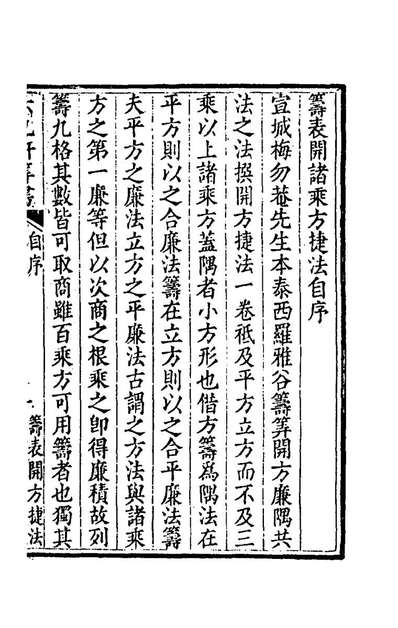 籌表開諸乘方捷法自序
宣城梅勿菴先生本泰西羅雅谷籌算開方廉隅共
法之法撰開方捷法一卷祗及平方立方而不及三
乘以上諸乘方蓋隅者小方形也借方籌爲隅法在
平方則以之合廉法籌在立方則以之合平廉法籌
夫平方之廉法立方之平廉法古謂之方法與諸乘
方之第一廉等但以次商之根乘之卽得廉積故列
籌九格其數皆可取商雖百乘方可用籌者也獨其
自序
籌表開方捷法